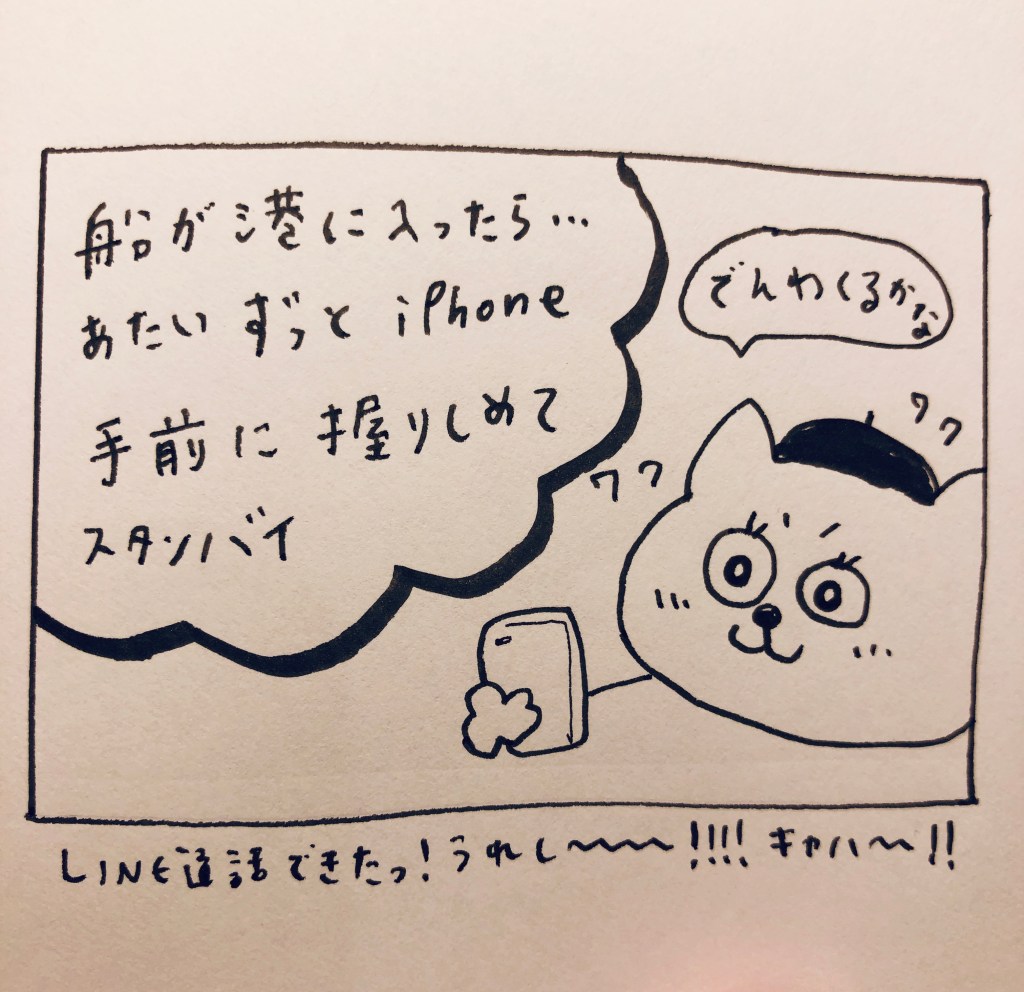 船が港に入ったら…
あたいずっとiPhone
手前に握りしめて
スタンバイ
でんわくるかな
ワワ
ワワ
LINE通話できたっ！うれし〜〜〜!!!! キャハ〜!!